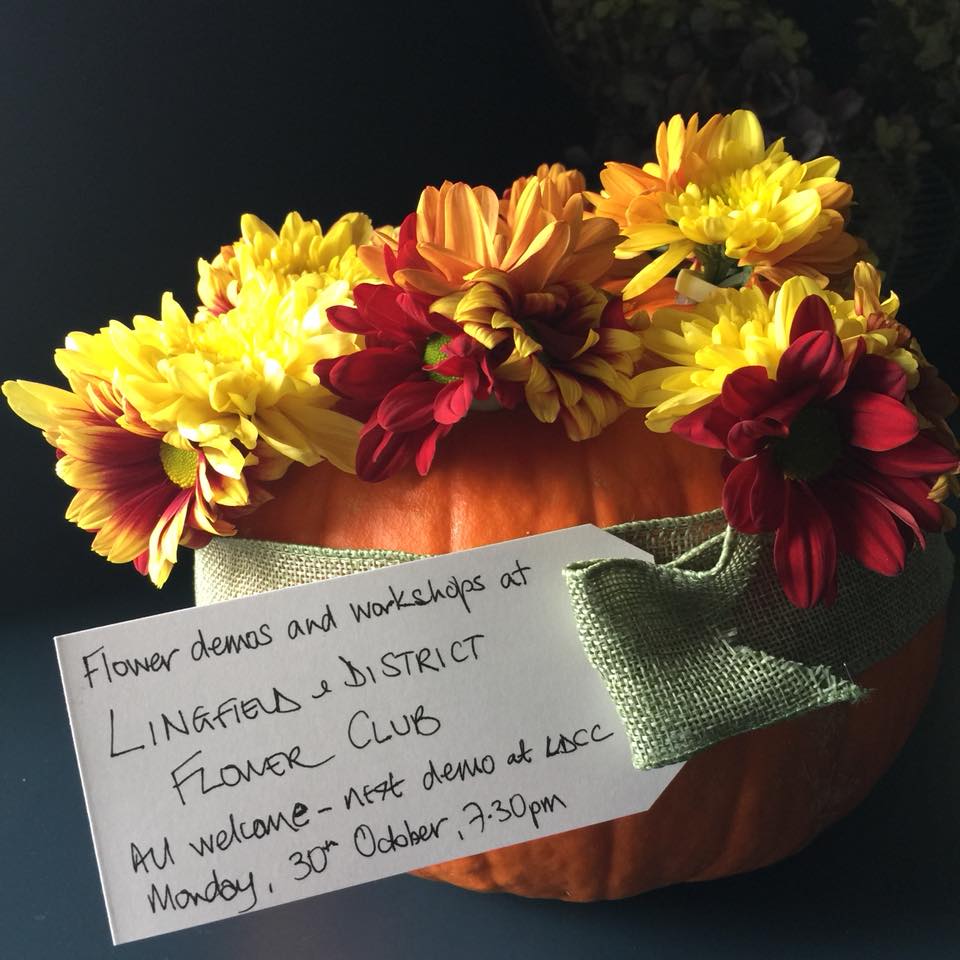 Flower demos and workshops at
LINGFIELD & DISTRICT
FLOWER CLUB
All welcome - next demo at LDCC
Monday, 30th October, 7.30pm